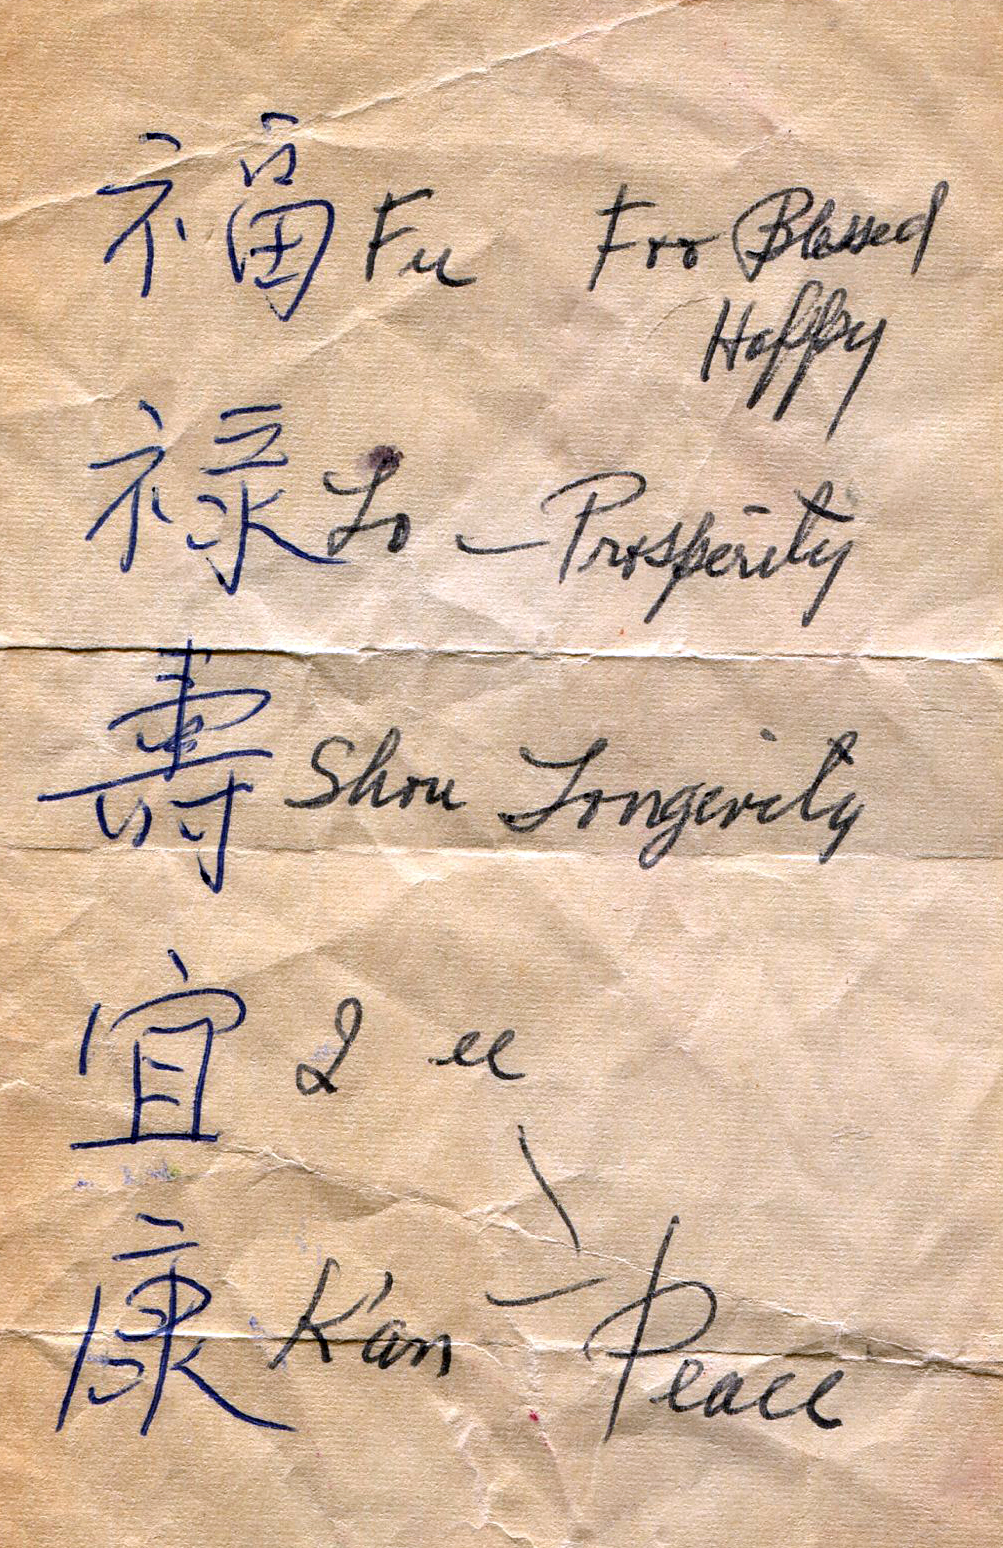 福 Fu For Blessed
Happy
禄 Lo — Prosperity
壽 Shou Longevity
宜 I
康 K'an — Peace